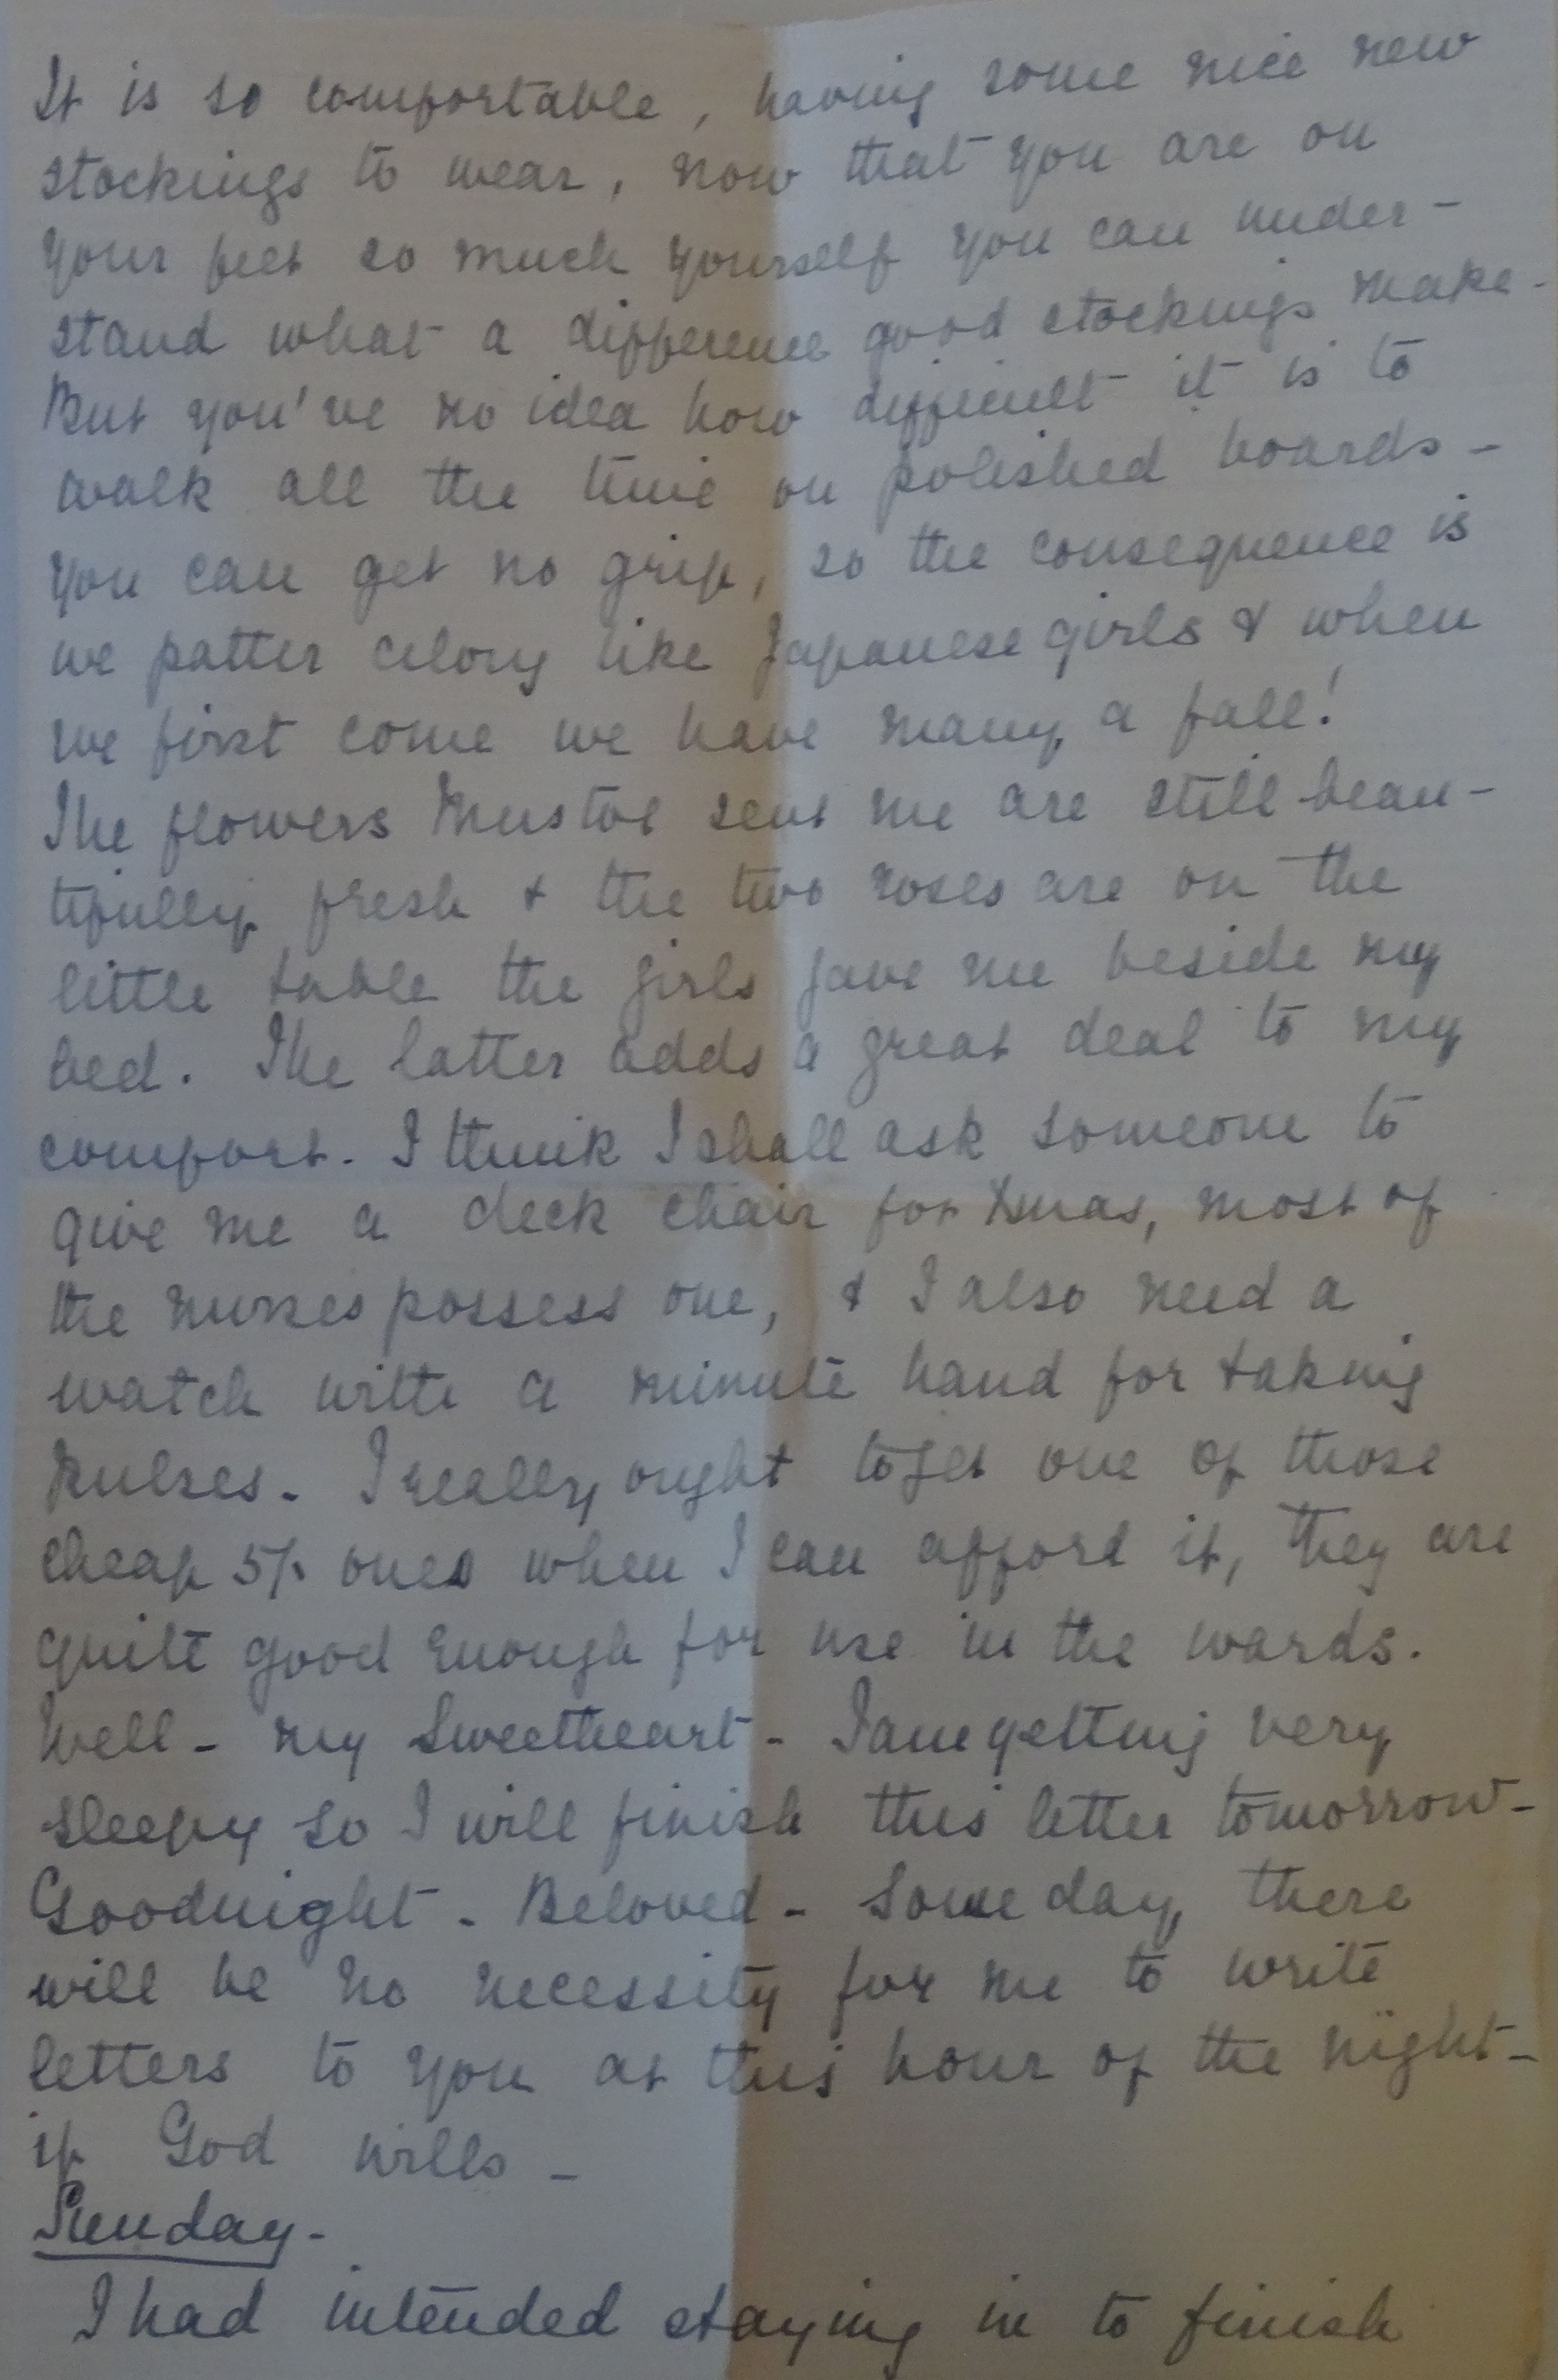 It is so comfortable, having some nice new
stockings to wear, now that you are on
your feet so much yourself you can under-
stand what a difference good stockings make.
But you've no idea how difficult it is to
walk all the time on polished boards -
you can get no grip, so the consequence is
we patter along like Japanese girls & when
we first come we have many a fall!
The flowers sent me are still beau-
tifully fresh & the two roses are on the
little table the girls gave me beside my
bed. The latter adds a great deal to my
comfort. I think I shall ask someone to
give me a deck chair for Xmas, most of
the nurses possess one, & I also need a
watch with a minute hand for taking
pulses. I really ought to get one of those
cheap 5/- ones when I can afford it, they are
quite good enough for use in the wards.
Well - my Sweetheart - I am getting very
sleepy so I will finish this letter tomorrow -
Goodnight - Beloved - Some day, there
will be no necessity for me to write
letters to you at this hour of the night -
if God wills -
Sunday -
I had intended staying in to finish